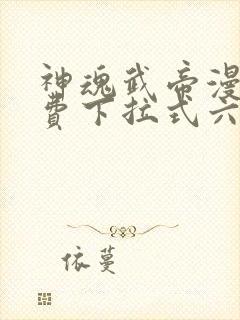 神魂武帝漫
費下拉式六
依蔓